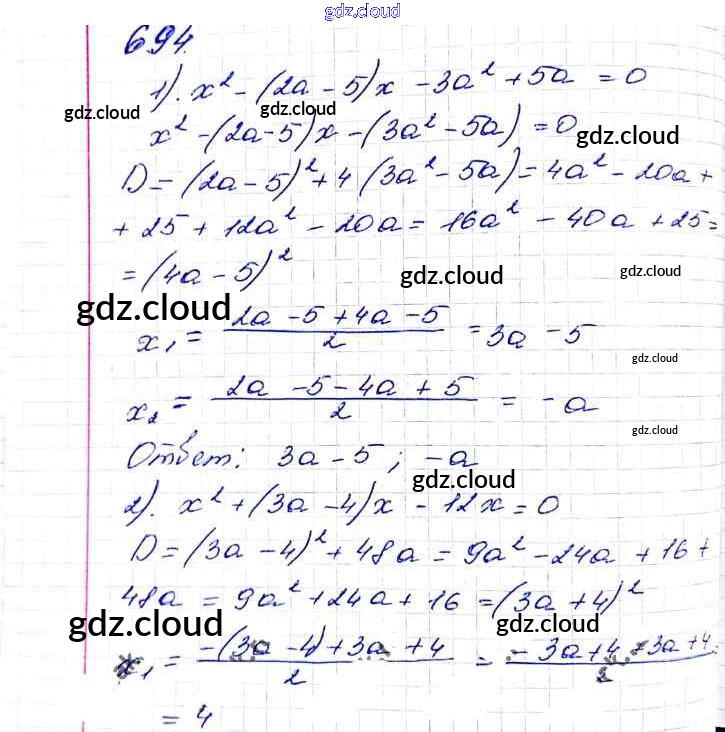 gdz.cloud
694.
1). x² - (2a - 5)x - 3a² + 5a = 0
gdz.cloud gdz.cloud
x² - (2a - 5)x - (3a² - 5a) = 0
gdz.cloud
D = (2a - 5)² + 4(3a² - 5a) = 4a² - 20a +
+ 25 + 12a² - 20a = 16a² - 40a + 25 =
= (4a - 5)²
gdz.cloud gdz.cloud
gdz.cloud
x₁ = (2a - 5 + 4a - 5)/2 = 3a - 5
gdz.cloud
x₂ = (2a - 5 - 4a + 5)/2 = -a
gdz.cloud
Ответ: 3a - 5; -a
gdz.cloud
2). x² + (3a - 4)x - 12x = 0
D = (3a - 4)² + 48a = 9a² - 24a + 16 +
48a = 9a² + 24a + 16 = (3a + 4)²
gdz.cloud gdz.cloud
x₁ = (-(3a - 4) + 3a + 4)/2 = (-3a + 4 + 3a + 4)/2 =
= 4